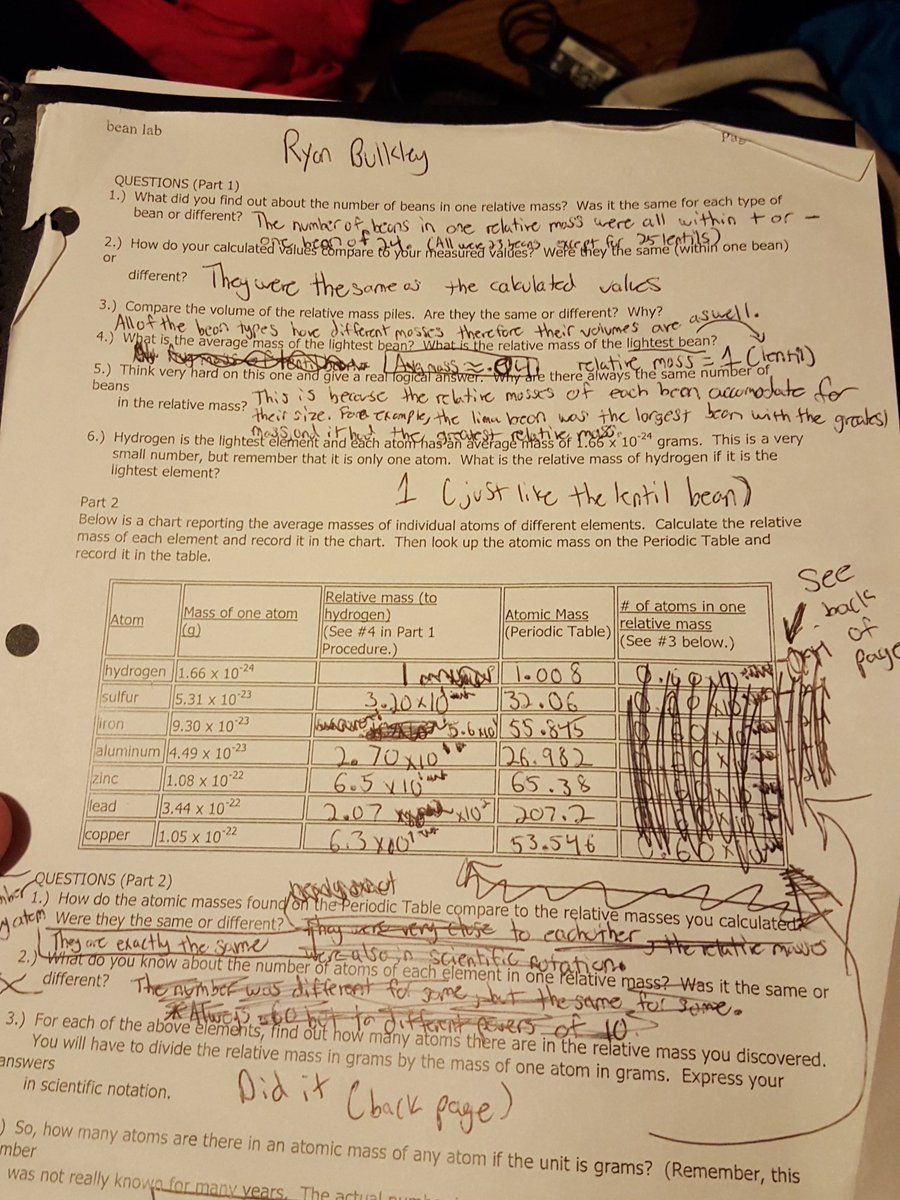 bean lab
Ryan Bulkley
QUESTIONS (Part 1)
1.) What did you find out about the number of beans in one relative mass? Was it the same for each type of
bean or different? The number of beans in one relative mass were all within + or -
one bean of 24. (All were 23 beans except for 25 lentils)
2.) How do your calculated values compare to your measured values? Were they the same (within one bean)
or
different? They were the same as the calculated values
3.) Compare the volume of the relative mass piles. Are they the same or different? Why?
All of the bean types have different masses therefore their volumes are as well.
4.) What is the average mass of the lightest bean? What is the relative mass of the lightest bean?
Avg mass ≈ .041 relative mass = 1 (lentil)
5.) Think very hard on this one and give a real logical answer. Why are there always the same number of
beans
in the relative mass? This is because the relative masses of each bean accomodate for
their size. For example, the lima bean was the largest bean with the greates)
mass and it had the greatest relative mass.
6.) Hydrogen is the lightest element and each atom has an average mass of 1.66 x 10-24 grams. This is a very
small number, but remember that it is only one atom. What is the relative mass of hydrogen if it is the
lightest element?
1 (just like the lentil bean)
Part 2
Below is a chart reporting the average masses of individual atoms of different elements. Calculate the relative
mass of each element and record it in the chart. Then look up the atomic mass on the Periodic Table and
record it in the table.
See
back
of
page
Atom Mass of one atom (g) Relative mass (to hydrogen) (See #4 in Part 1 Procedure.) Atomic Mass (Periodic Table) # of atoms in one relative mass (See #3 below.)
hydrogen 1.66 x 10-24 1 1.008
sulfur 5.31 x 10-23 3.20 x 10 32.06
iron 9.30 x 10-23 5.6 x10 55.845
aluminum 4.49 x 10-23 2.70 x10 26.982
zinc 1.08 x 10-22 6.5 x 10 65.38
lead 3.44 x 10-22 2.07 x10² 207.2
copper 1.05 x 10-22 6.3 x10 53.546
QUESTIONS (Part 2)
1.) How do the atomic masses found on the Periodic Table compare to the relative masses you calculated?
Were they the same or different? They were very close to eachother, the relative masses
They are exactly the same were also in scientific notation.
2.) What do you know about the number of atoms of each element in one relative mass? Was it the same or
different? The number was different for some, but the same for some.
* Always .60 but to different powers of 10
3.) For each of the above elements, find out how many atoms there are in the relative mass you discovered.
You will have to divide the relative mass in grams by the mass of one atom in grams. Express your
answers
in scientific notation. Did it (back page)
) So, how many atoms are there in an atomic mass of any atom if the unit is grams? (Remember, this
mber
was not really known for many years. The actual